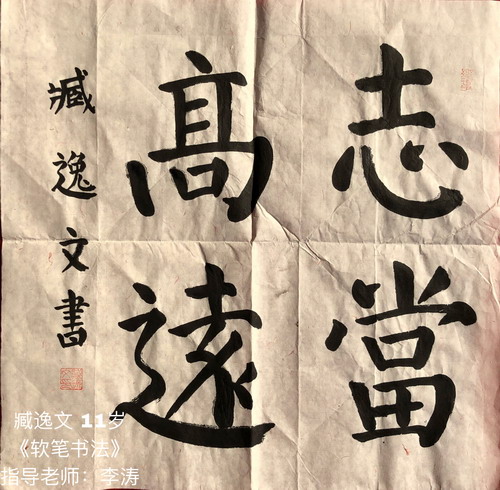 志當
髙遠
臧逸文書
臧逸文 11岁
《软笔书法》
指导老师：李涛